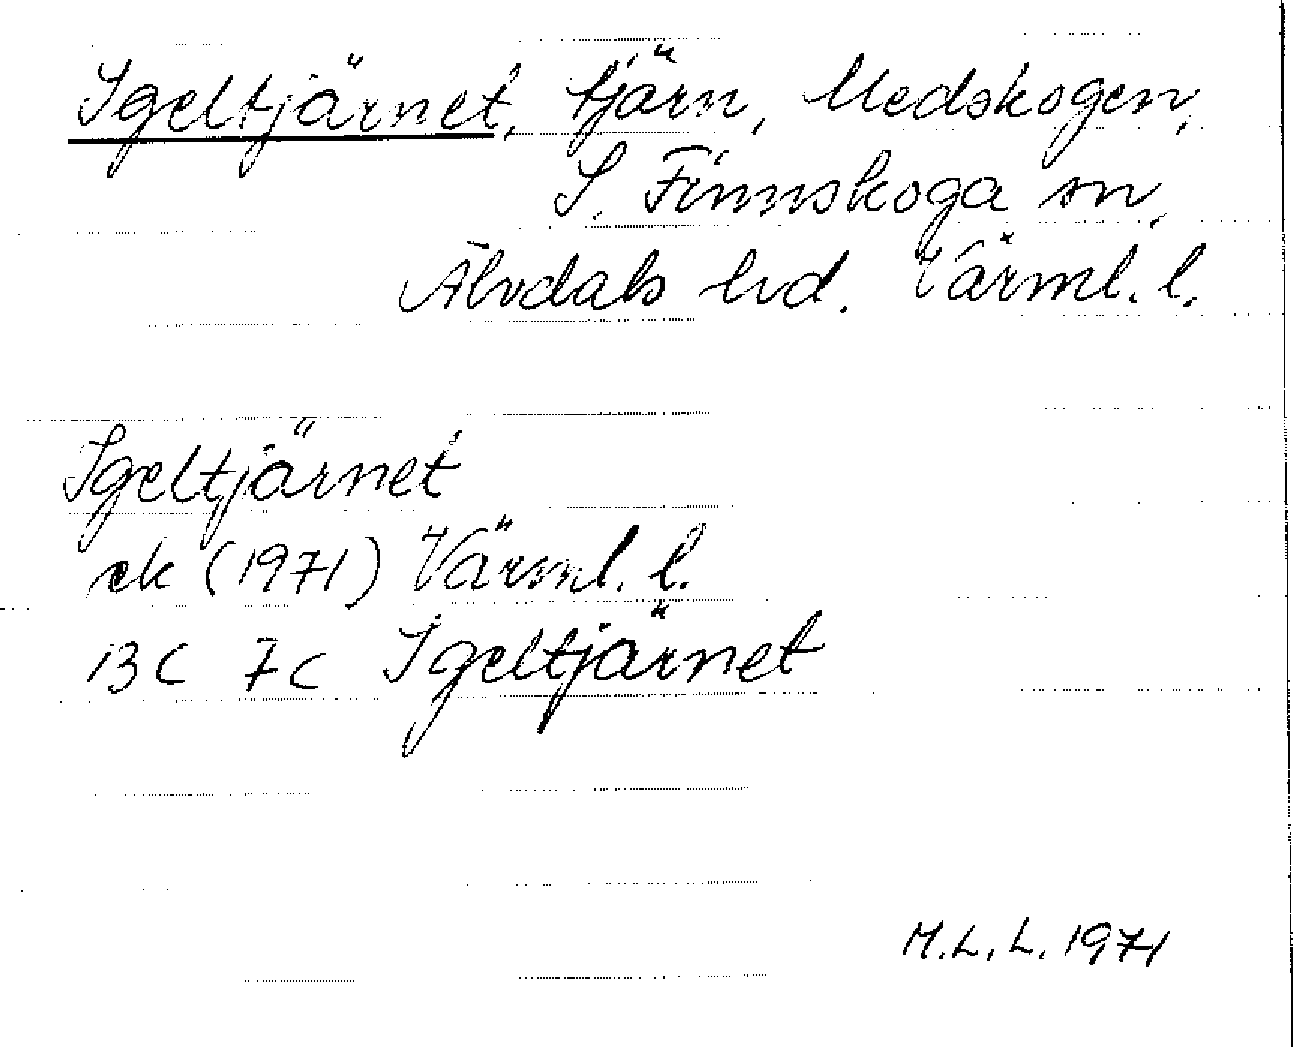 Igeltjärnet, tjärn, Medskogen,
S. Finnskoga sn,
Älvdals hd. Värml. l.
Igeltjärnet
ek (1971) Värml. l.
13C 7c Igeltjärnet
M.L.L. 1971